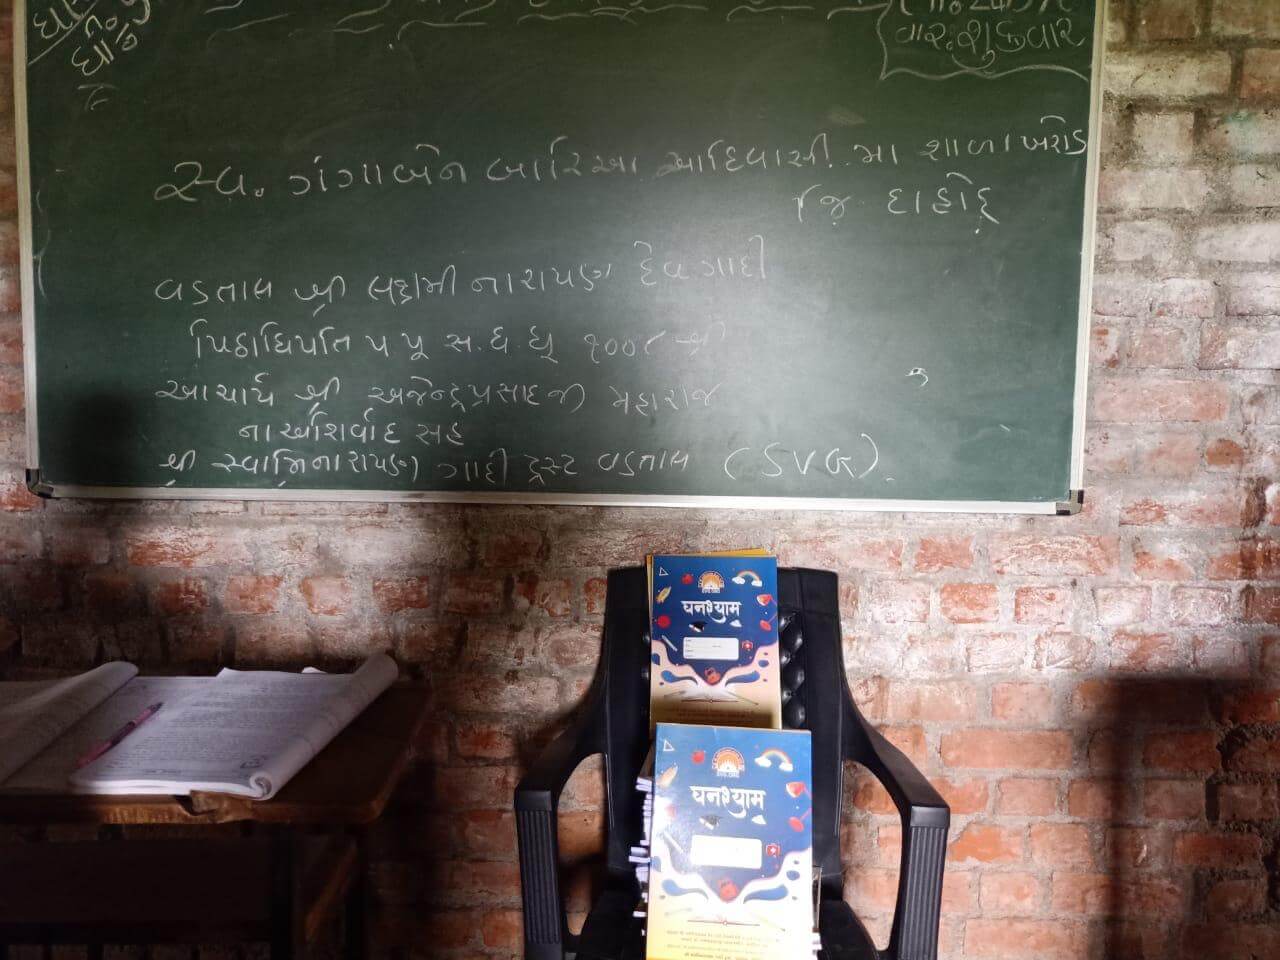 વાર:શુક્રવાર
સ્વ. ગંગાબેન બારિઆ આદિવાસી. મા શાળા ખરોડ
જિ. દાહોદ
વડતાલ શ્રી લક્ષ્મી નારાયણ દેવ ગાદી
પિઠાધિપતિ પ પૂ સ.ધ.ધુ ૧૦૦૮ શ્રી
આચાર્ય શ્રી અજેન્દ્રપ્રસાદજી મહારાજ
ના આશિર્વાદ સહ
શ્રી સ્વામિનારાયણ ગાદી ટ્રસ્ટ વડતાલ (SVG).
घनश्याम
घनश्याम